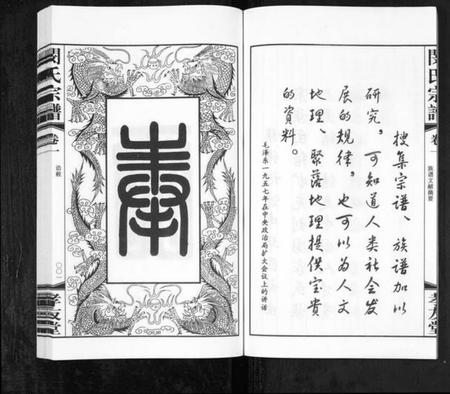 閔氏宗譜
卷一
族谱文献摘要
孝友堂
搜集宗谱、族谱加以
研究,可知道人类社会发
展的规律,也可以为人文
地理、聚落地理提供宝贵
的资料。
毛泽东一九五七年在中央政治局扩大会议上的讲话
奉
閔氏宗譜
卷一
孝友堂